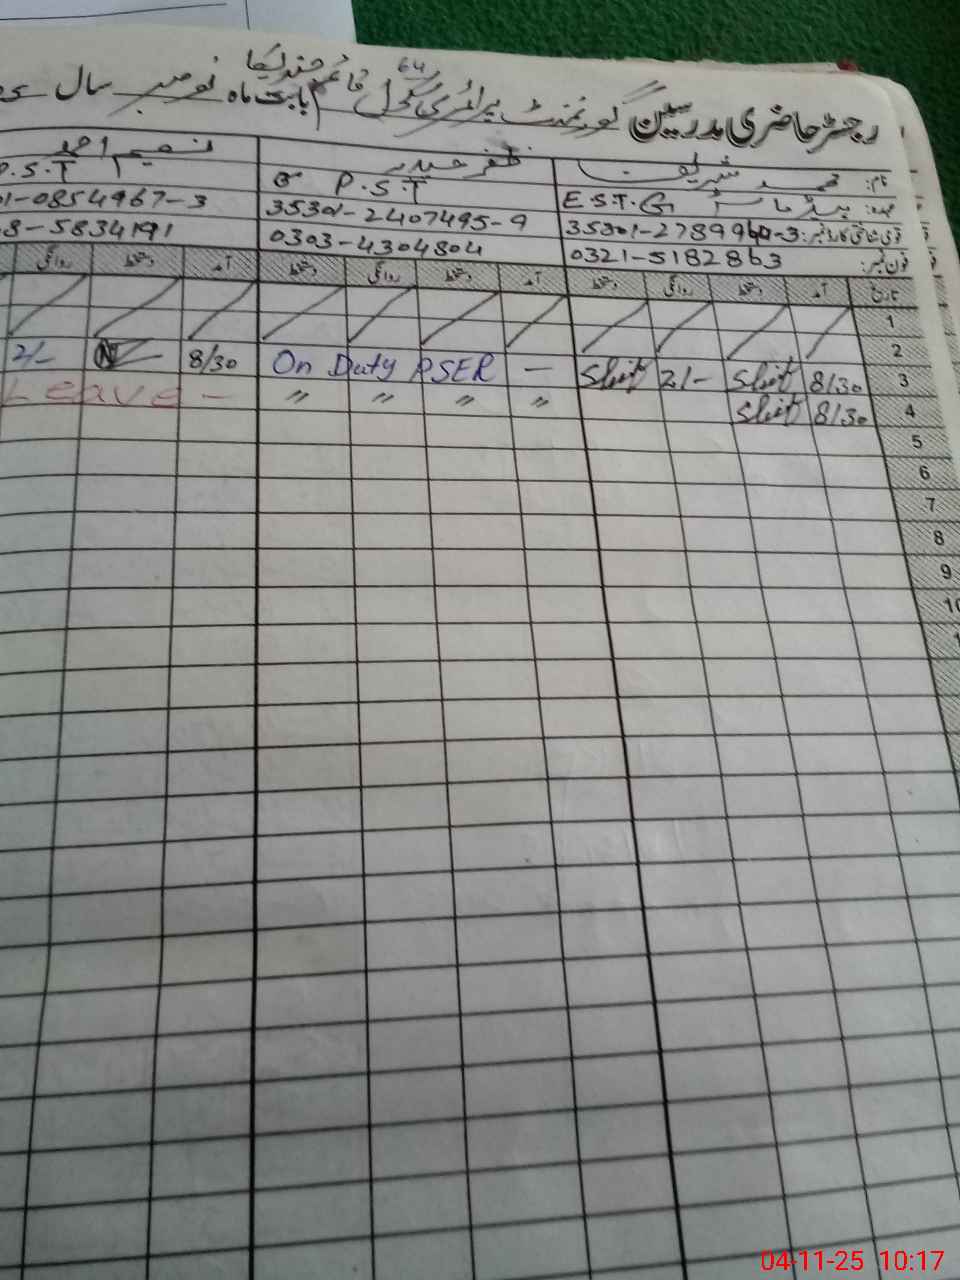 رجسٹر حاضری مدرسین گورنمنٹ پرائمری سکول قائم چندیکا بابت ماہ نومبر سال
64
نام: محمد شریف ظفر حیدر نسیم احمد
عہدہ: ہیڈ ماسٹر E.S.T.G P.S.T P.S.T
قومی شناختی کارڈ نمبر: 35301-2789960-3 35301-2407495-9 01-0854967-3
فون نمبر: 0321-5182863 0303-4304804 8-5834191
تاریخ آمد دستخط روانگی دستخط آمد دستخط روانگی دستخط آمد دستخط روانگی
1
2
3 8/30 2/- On Duty PSER — 8/30 N 2/-
4 8/30 〃 〃 〃 〃 Leave -
5
6
7
8
9
10
04-11-25 10:17